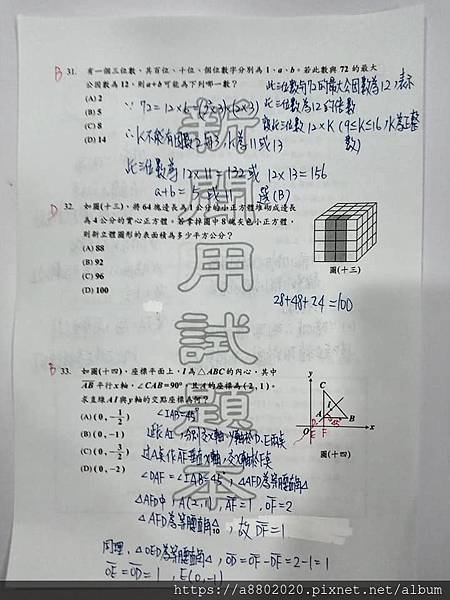 B 31. 有一個三位數，其百位、十位、個位數字分別為 1、a、b。若此數與 72 的最大
公因數為 12，則 a+b 可能為下列哪一數？
(A) 2
(B) 5
(C) 8
(D) 14
此三位數與72的最大公因數為12，表示
此三位數為12的倍數
∵ 72=12×6=(2×3)×(2×3)
設此三位數 12×K (9≤K≤16，K為正整
數)
∴K不能有因數2或3，K為11或13
此三位數為 12×11=132或 12×13=156
a+b= 5 或 11 選(B)
D 32. 如圖(十三)，將 64 塊邊長為 1 公分的小正方體堆砌成邊長
為 4 公分的實心正方體。若拿掉圖中 8 塊灰色小正方體，
則新立體圖形的表面積為多少平方公分？
(A) 88
(B) 92
(C) 96
(D) 100
圖(十三)
28+48+24=100
B 33. 如圖(十四)，座標平面上，I 為△ABC 的內心，其中
AB 平行 x 軸，∠CAB=90°，且 A 的座標為(2, 1)。
求直線 AI 與 y 軸的交點座標為何？
(A) (0, -1/2)
(B) (0, -1)
(C) (0, -3/2)
(D) (0, -2)
y
C
I
A
B
O
D
F
E
x
圖(十四)
∠IAB=45°
過A作AF垂直X軸，交X軸於F點
∠DAF=∠IAB=45°，△AFD為等腰直角△
△AFD中，A(2,1)，AF=1，OF=2
△AFD為等腰直角△，故DF=1
10
同理，△OED為等腰直角△，OD=OF-DF=2-1=1
OE=OD=1，E(0,-1)
新聞用試題本
https://a8802020.pixnet.net/album